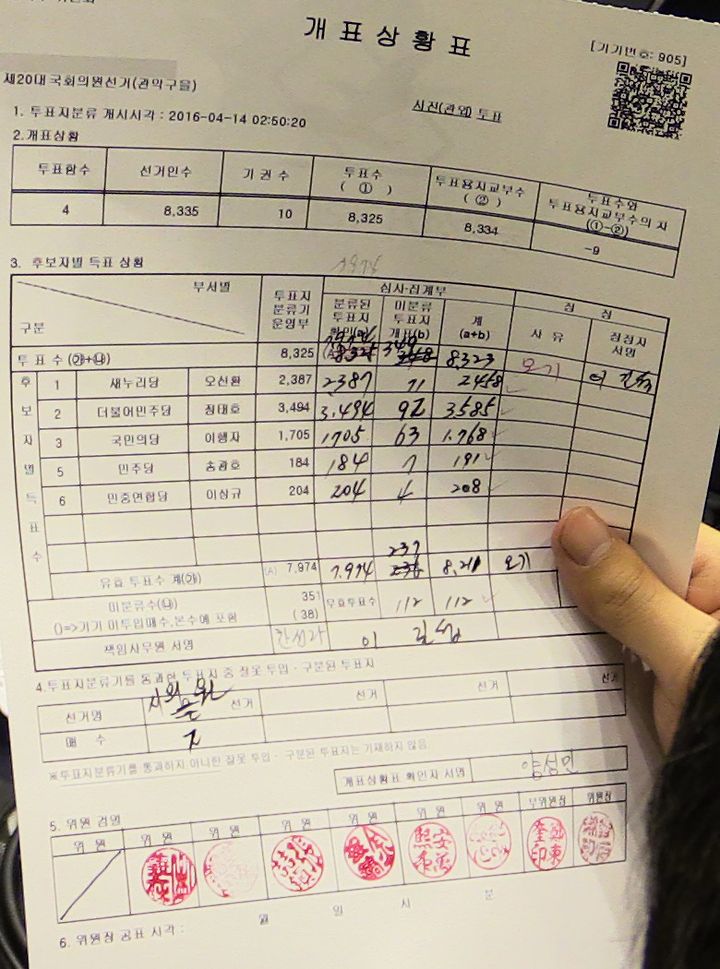 개 표 상 황 표
[기기번호: 905]
제20대국회의원선거(관악구을)
사전(관외) 투표
1. 투표지분류 개시시각 : 2016-04-14 02:50:20
2.개표상황
투표함수 선거인수 기 권 수 투표수 ( ① ) 투표용지교부수 ( ② ) 투표수와 투표용지교부수의 차 (①-②)
4 8,335 10 8,325 8,334 -9
3. 후보자별 득표 상황
부서별 구분 투표지 분류기 운영부 심사·집계부 정 정
분류된 투표지 확인(a) 미분류 투표지 개표(b) 계 (a+b) 사 유 정정자 서명
투 표 수 (㉮+㉯) 8,325 7,974 349 8,323 오기
후 보 자 별 득 표 수
1 새누리당 오신환 2,387 2387 71 2458
2 더불어민주당 정태호 3,494 3,494 92 3585
3 국민의당 이행자 1,705 1705 63 1,768
5 민주당 송광호 184 184 7 191
6 민중연합당 이상규 204 204 4 208
유효 투표수 계(㉮) (A) 7,974 7,974 237 8,211 오기
미분류수(㉯) 351 무효투표수 112 112
()=>기기 미투입매수,본수에 포함 (38)
책임사무원 서명
4.투표지분류기를 통과한 투표지 중 잘못 투입 · 구분된 투표지
선거명 선거 선거 선거 선거
매 수
※투표지분류기를 통과하지 아니한 잘못 투입 · 구분된 투표지는 기재하지 않음
개표상황표 확인자 서명 양성민
5. 위원 검열
위 원 위 원 위 원 위 원 위 원 위 원 위 원 부위원장 위원장
6. 위원장 공표 시각 : 월 일 시 분